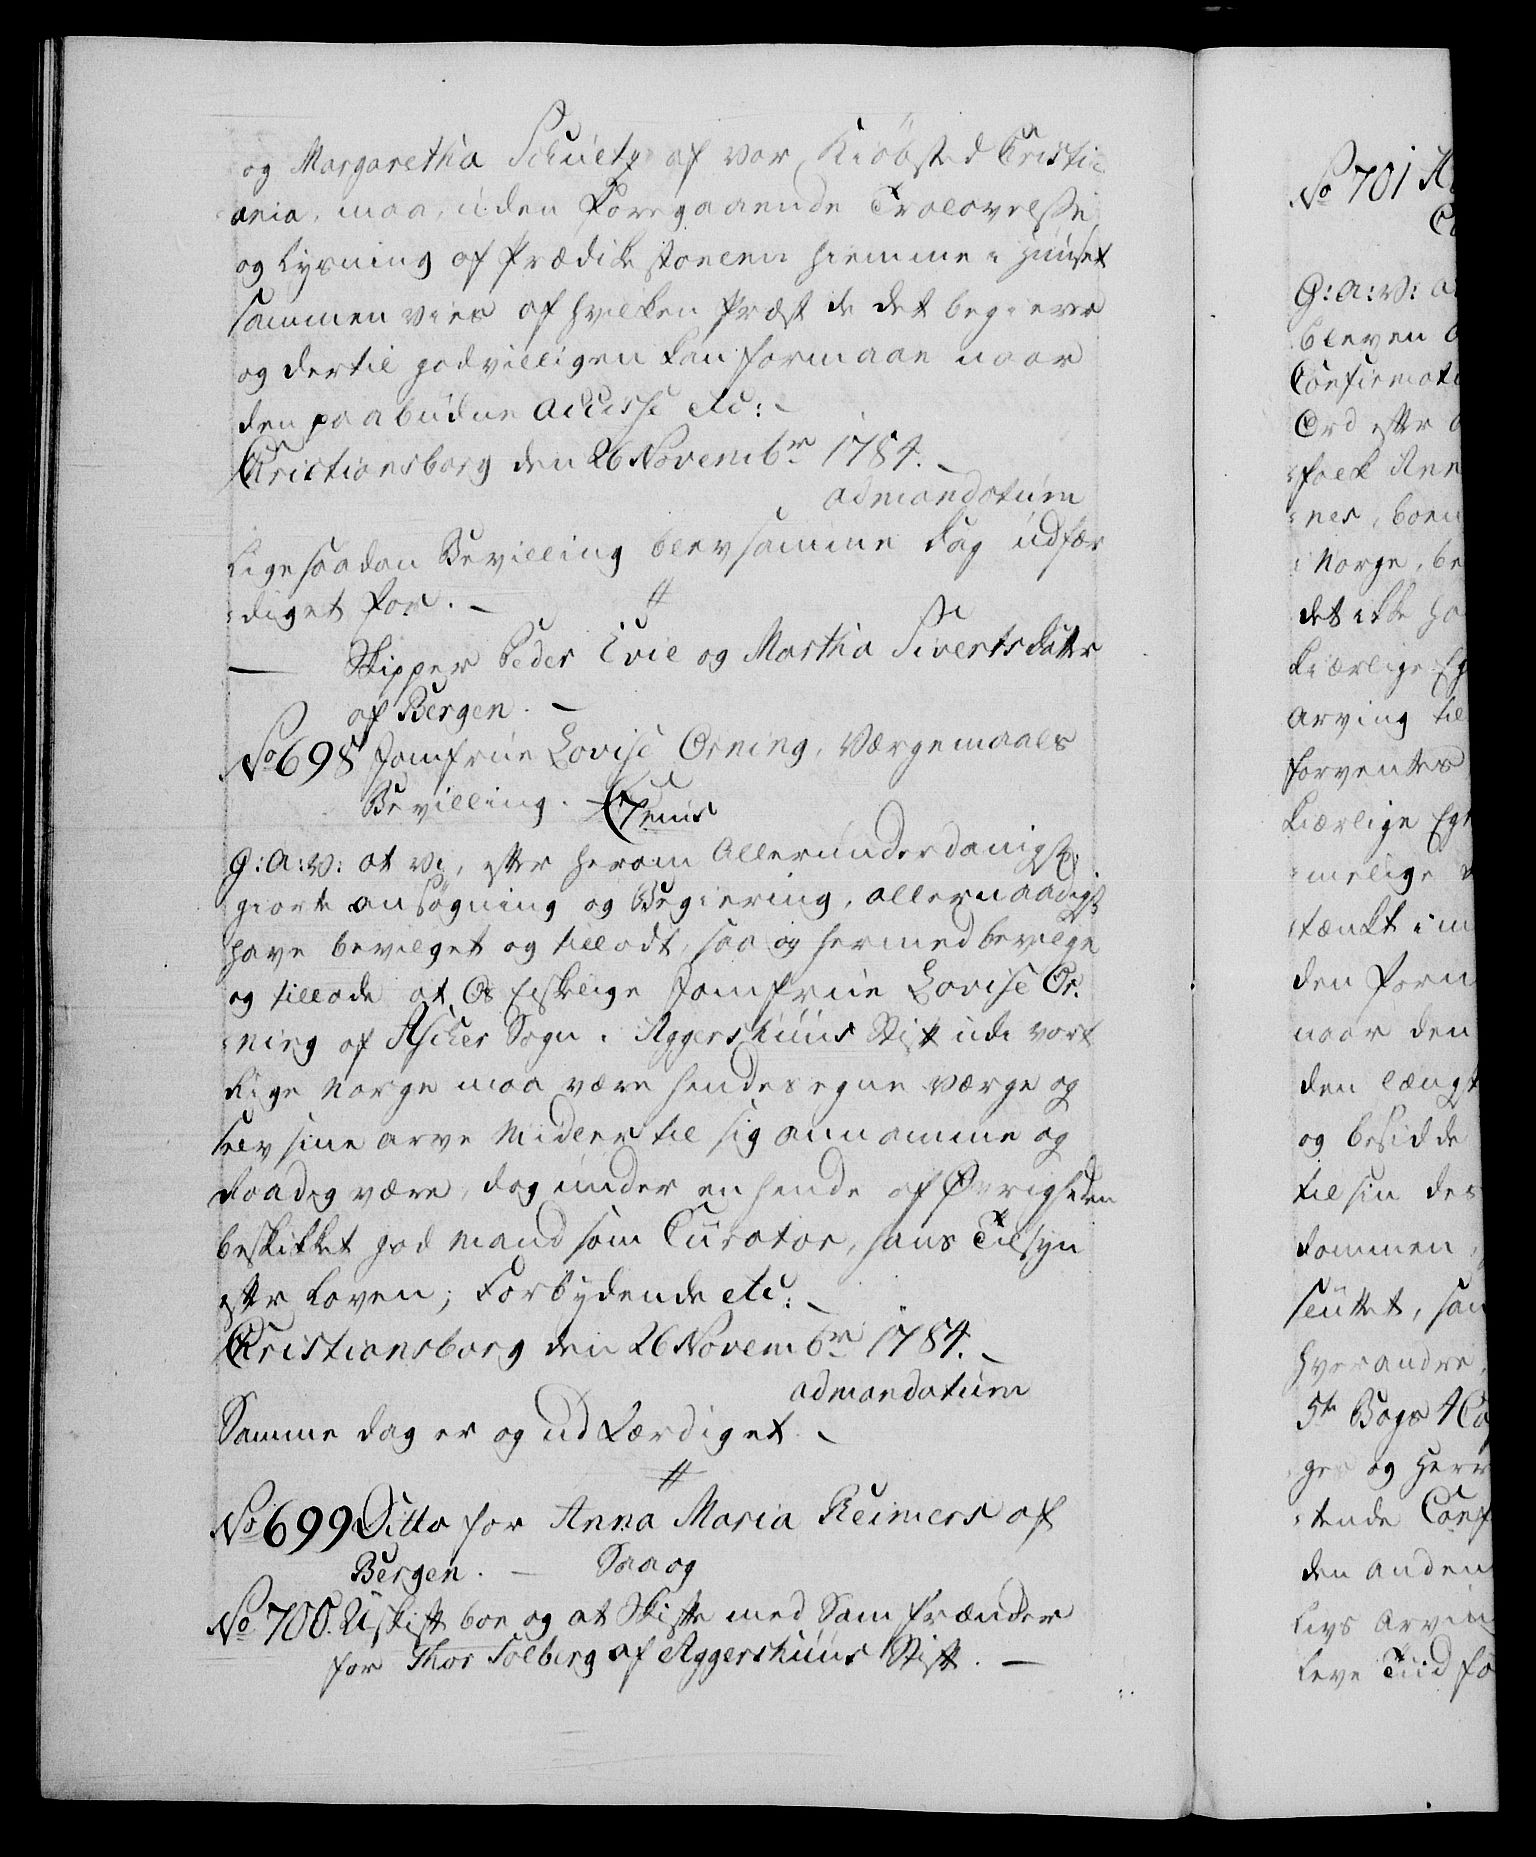 og Margaretha Schültz af vor Kiöbsted Christi
ania, maa, uden Foregaaende Trolovelse
og Lysning af Prædikestolen hiemme i Huuset
sammen vies af hvilken Præst de det begierer
og dertil godvilligen kan formaae naar
den paabudne Accisse etc:
Christiansborg den 26 Novembr 1784.
ad mandatum
Ligesaadan Bevilling blev samme Dag udfær
diget for.
Skipper Peder Evie og Martha Sivertsdatter
af Bergen.
No 698 Jomfrue Lovise Orning, Værgemaals
Bevilling. C 7mus
G: A: V: at Vi, efter herom Allerunderdanigst
giorte ansøgning og Begiering, allernaadigst
have bevilget og tilladt, saa og hermed bevilge
og tillade at Os Elskelige Jomfrue Lovise Or-
ning af Asker Sogn i Aggershuus Stift udi vort
Rige Norge maa være hendes egen Værge og
selv sine arve Midler til sig annamme og
raadig være, dog under en hende af Øvrigheden
beskikket god Mand som Curator, hans Tilsyn
efter Loven; Forbydende etc:
Christiansborg den 26 Novembr 1784.
ad mandatum
Samme dag er og udfærdiget
No 699 Ditto for Anna Maria Reimers af
Bergen. Saa og
No 700. Uskift boe og at Skifte med Samfrænder
for Thor Solberg af Aggershuus Stift.
No 701
G: A: V:
bleven
Confirmati
Ord efter
folk
nes, boen
Norge, be
det ikke ha
kiærlige Eg
Arving til
forventes
kiærlige Egt
melige
tænkt i m
den Form
naar den
den længst
og besidde
til sin des
dommen,
sluttet, saa
hverandre
5te Bogs 4 Ca
ges og Herr
tende Conf
den anden
Livs Arvin
Leve Tiid fo